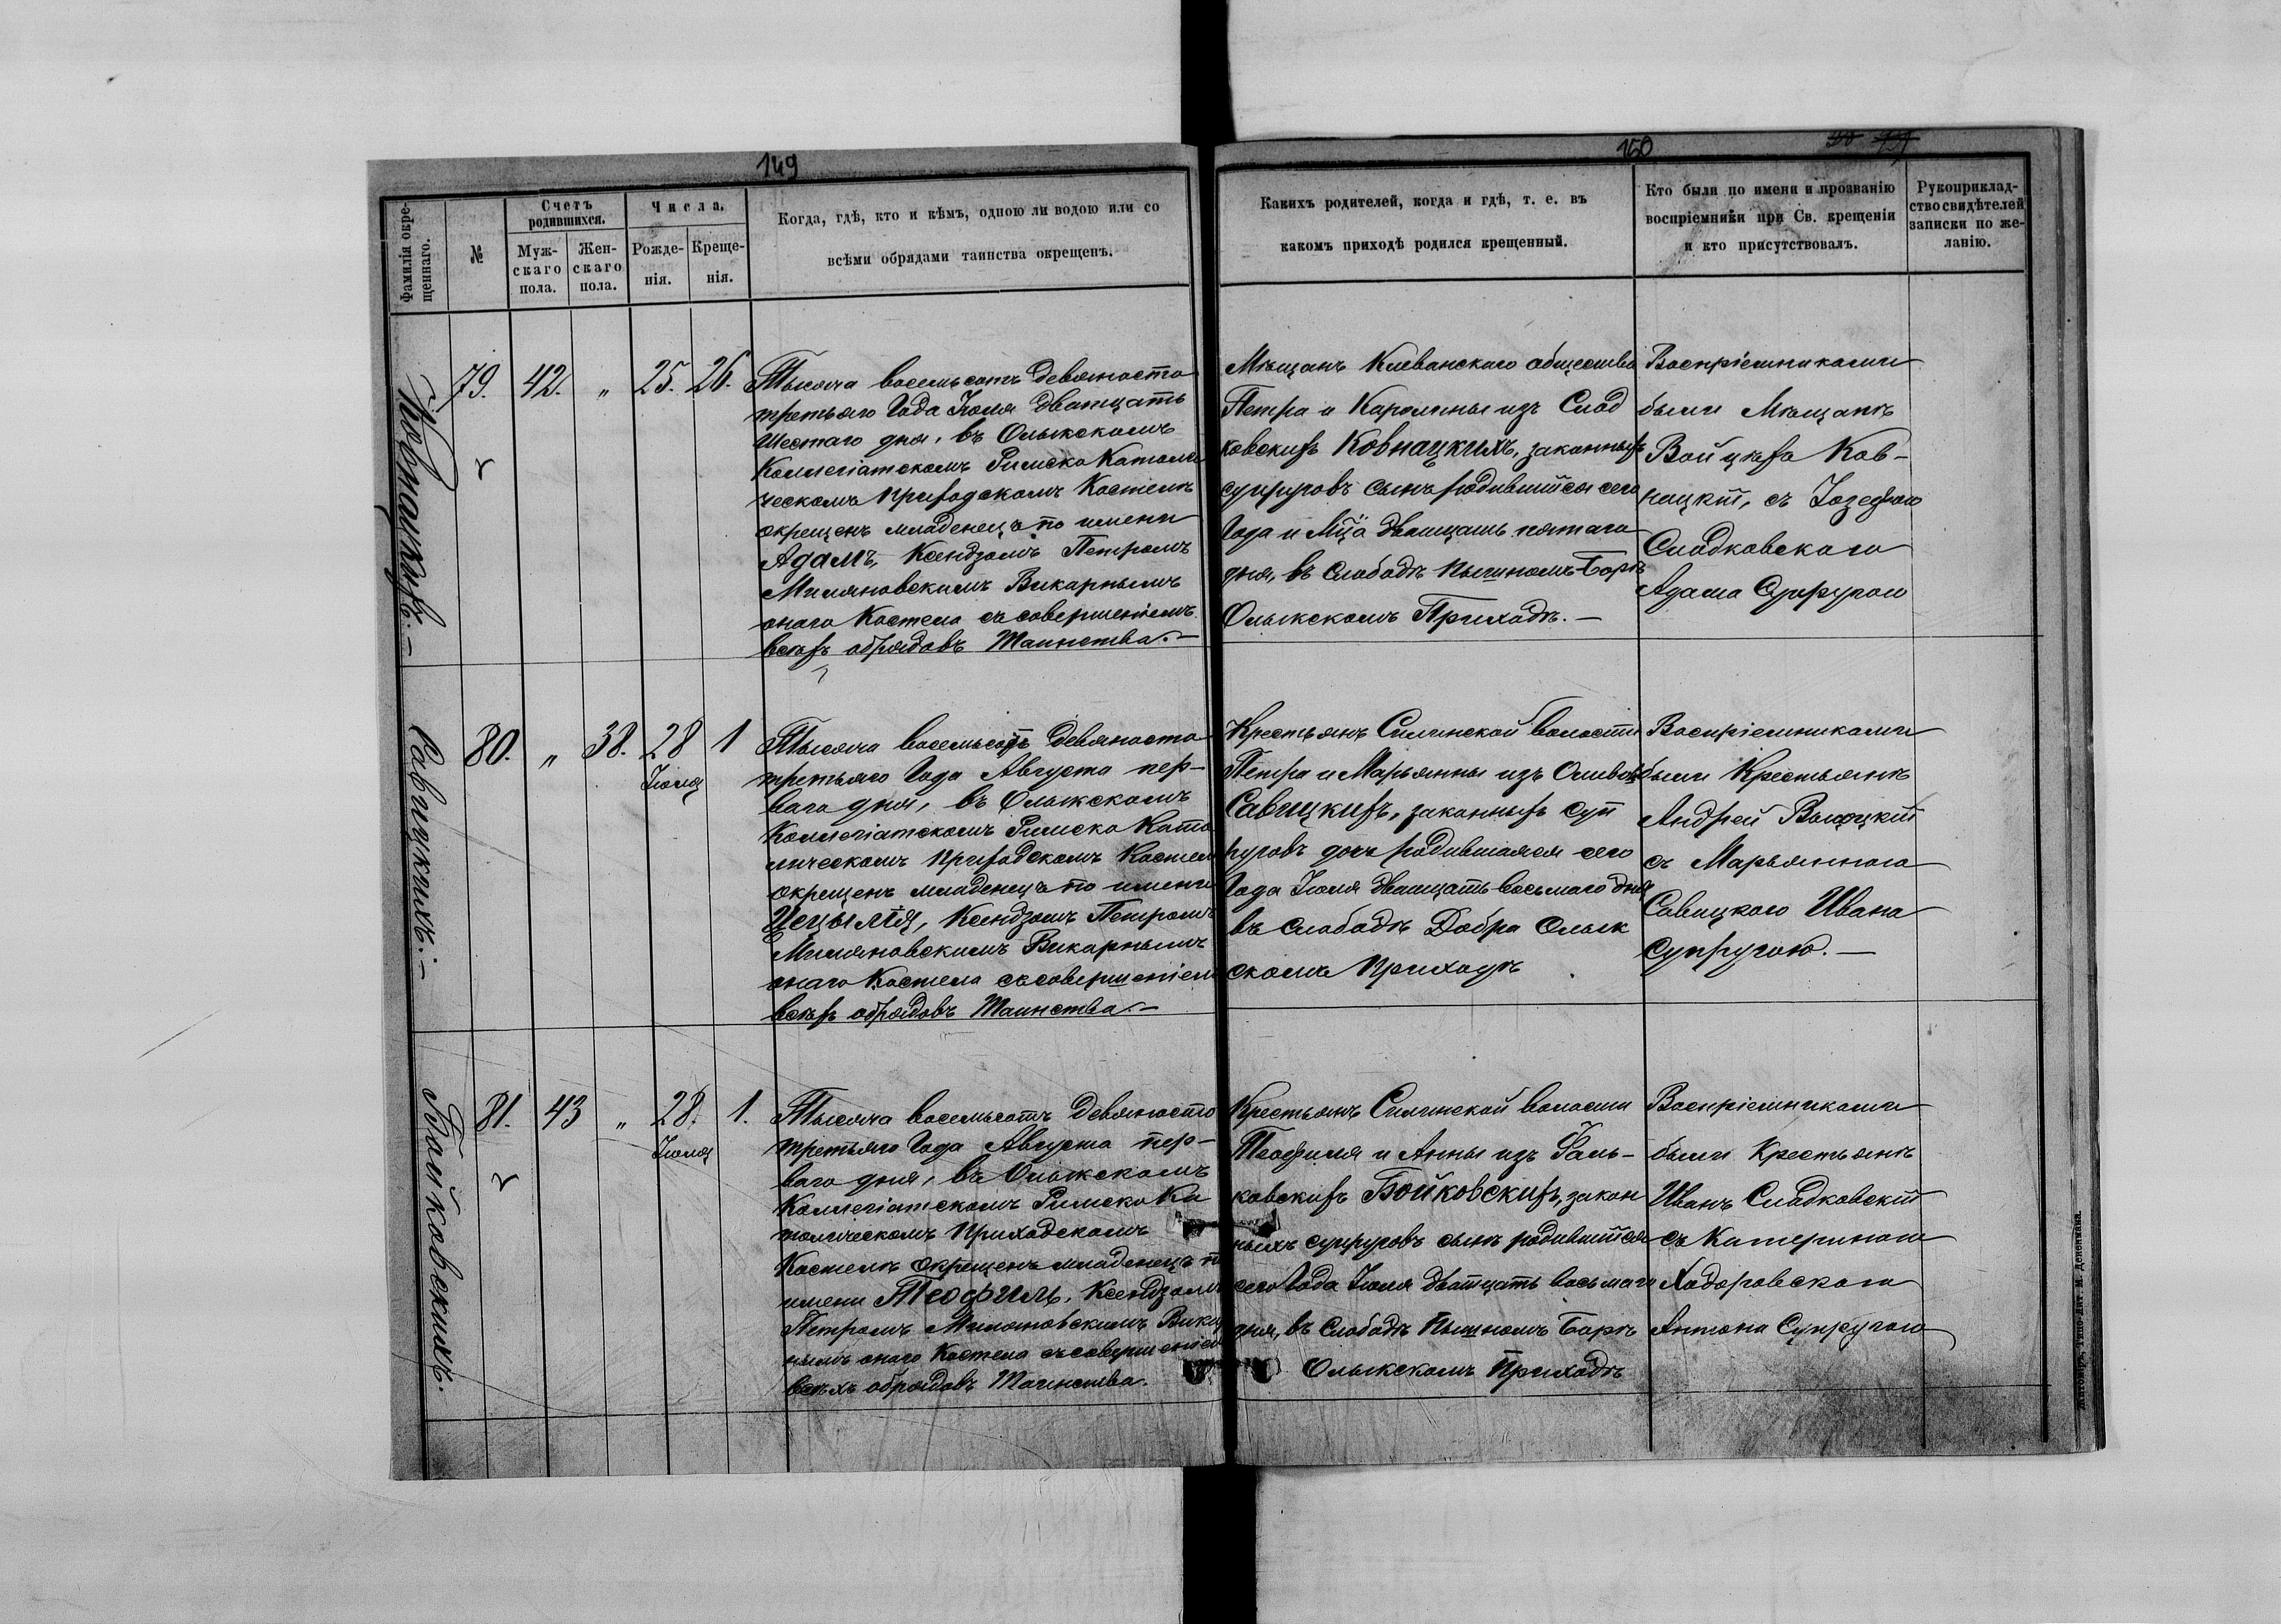 149
150
Фамилія окре-
щеннаго.
№
Счетъ
родившихся.
Муж-
скаго
пола.
Жен-
скаго
пола.
Числа.
Рожде-
нія.
Креще-
нія.
Когда, гдѣ, кто и кѣмъ, одною ли водою или со
всѣми обрядами таинства окрещенъ.
Какихъ родителей, когда и гдѣ, т. е. въ
какомъ приходѣ родился крещенный.
Кто были по имени и прозванію
воспріемники при Св. крещеніи
и кто присутствовалъ.
Рукоприклад-
ство свидѣтелей
записки по же-
ланію.
Ковнацкихъ. —
79. 42. „ 25. 26.
Тысяча восемьсотъ девяносто
третьяго Года Іюля двадцать
шестаго дня, въ Олыкскомъ
Коллегіатскомъ Римско Католи
ческомъ приходскомъ Костелѣ
окрещенъ младенецъ по имени
Адамъ, Ксендзомъ Петромъ
Миляновскимъ Викарнымъ
онаго Костела съ совершеніемъ
всѣхъ обрядовъ Таинства. —
Мѣщанъ Клеванскаго общества
Петра и Каролины изъ Слад
ковскихъ Ковнацкихъ, законныхъ
супруговъ сынъ родившійся сего
Года и Мца двадцать пятаго
дня, въ Слободѣ Пышномъ-Борѣ
Олыкскомъ Приходѣ. —
Воспріемниками
были Мѣщанъ
Войцѣхъ Ков-
нацкій, съ Іозефою
Сладковскаго
Адама Супругою
Савицкихъ. —
80. „ 38. 28 1
Іюля
Тысяча восемьсотъ девяносто
третьяго Года Августа пер-
ваго дня, въ Олыкскомъ
Коллегіатскомъ Римско Като
лическомъ приходскомъ Костел
окрещенъ младенецъ по имени
Цецылія, Ксендзомъ Петромъ
Миляновскимъ Викарнымъ
онаго Костела съ совершеніем
всѣхъ обрядовъ Таинства. —
Крестьянъ Силинской волости
Петра и Марьянны изъ
Савицкихъ, законныхъ суп
руговъ дочь родившаяся сего
Года Іюля двадцать восьмаго дня
въ слободѣ Добра Олык
скомъ Приходѣ
Воспріемниками
были Крестьянъ
Андрей Высоцкій
съ Марьянною
Савицкаго Ивана
Супругою. —
Бойковскихъ.
81. 43 „ 28. 1.
Іюля
Тысяча восемьсотъ девяносто
третьяго Года Августа пер-
ваго дня, въ Олыкскомъ
Коллегіатскомъ Римско Ка
толическомъ Приходскомъ
Костелѣ окрещенъ младенецъ п
имени Теофиль, Ксендзом
Петромъ Миляновскимъ Викар
нымъ онаго Костела съ совершеніем
всѣхъ обрядовъ Таинства.
Крестьянъ Силинской волости
Теофиля и Анны изъ Фаль-
ковскихъ Бойковскихъ, закон
ныхъ супруговъ сынъ родившійся
сего Года Іюля двадцать восьмаго
дня, въ Слободѣ Пышномъ Борѣ
Олыкскомъ Приходѣ
Воспріемниками
были Крестьянъ
Иванъ Сладковскій
съ Катериною
Ходоровскаго
Антона Супругою
Житомиръ, Типо-Лит. М. Дененмана.